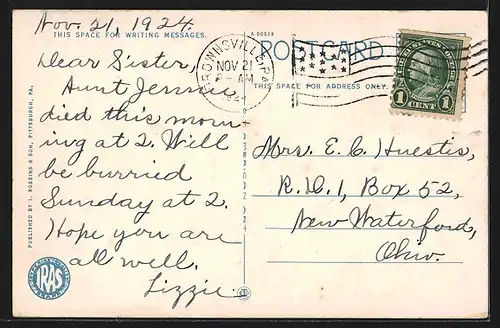 Nov. 21, 1924.
THIS SPACE FOR WRITING MESSAGES.
Dear Sister,
Aunt Jennie
died this morn-
ing at 2. Will
be burried
Sunday at 2.
Hope you are
all well.
Lizzie.
PUBLISHED BY I. ROBBINS & SON, PITTSBURGH, PA.
IRAS
A 90938
POSTCARD
THIS SPACE FOR ADDRESS ONLY.
BROWNSVILLE, PA.
NOV 21
AM
UNITED STATES POSTAGE
1 CENT 1
Mrs. E. C. Huestis,
R. D. 1, Box 52,
New Waterford,
Ohio.